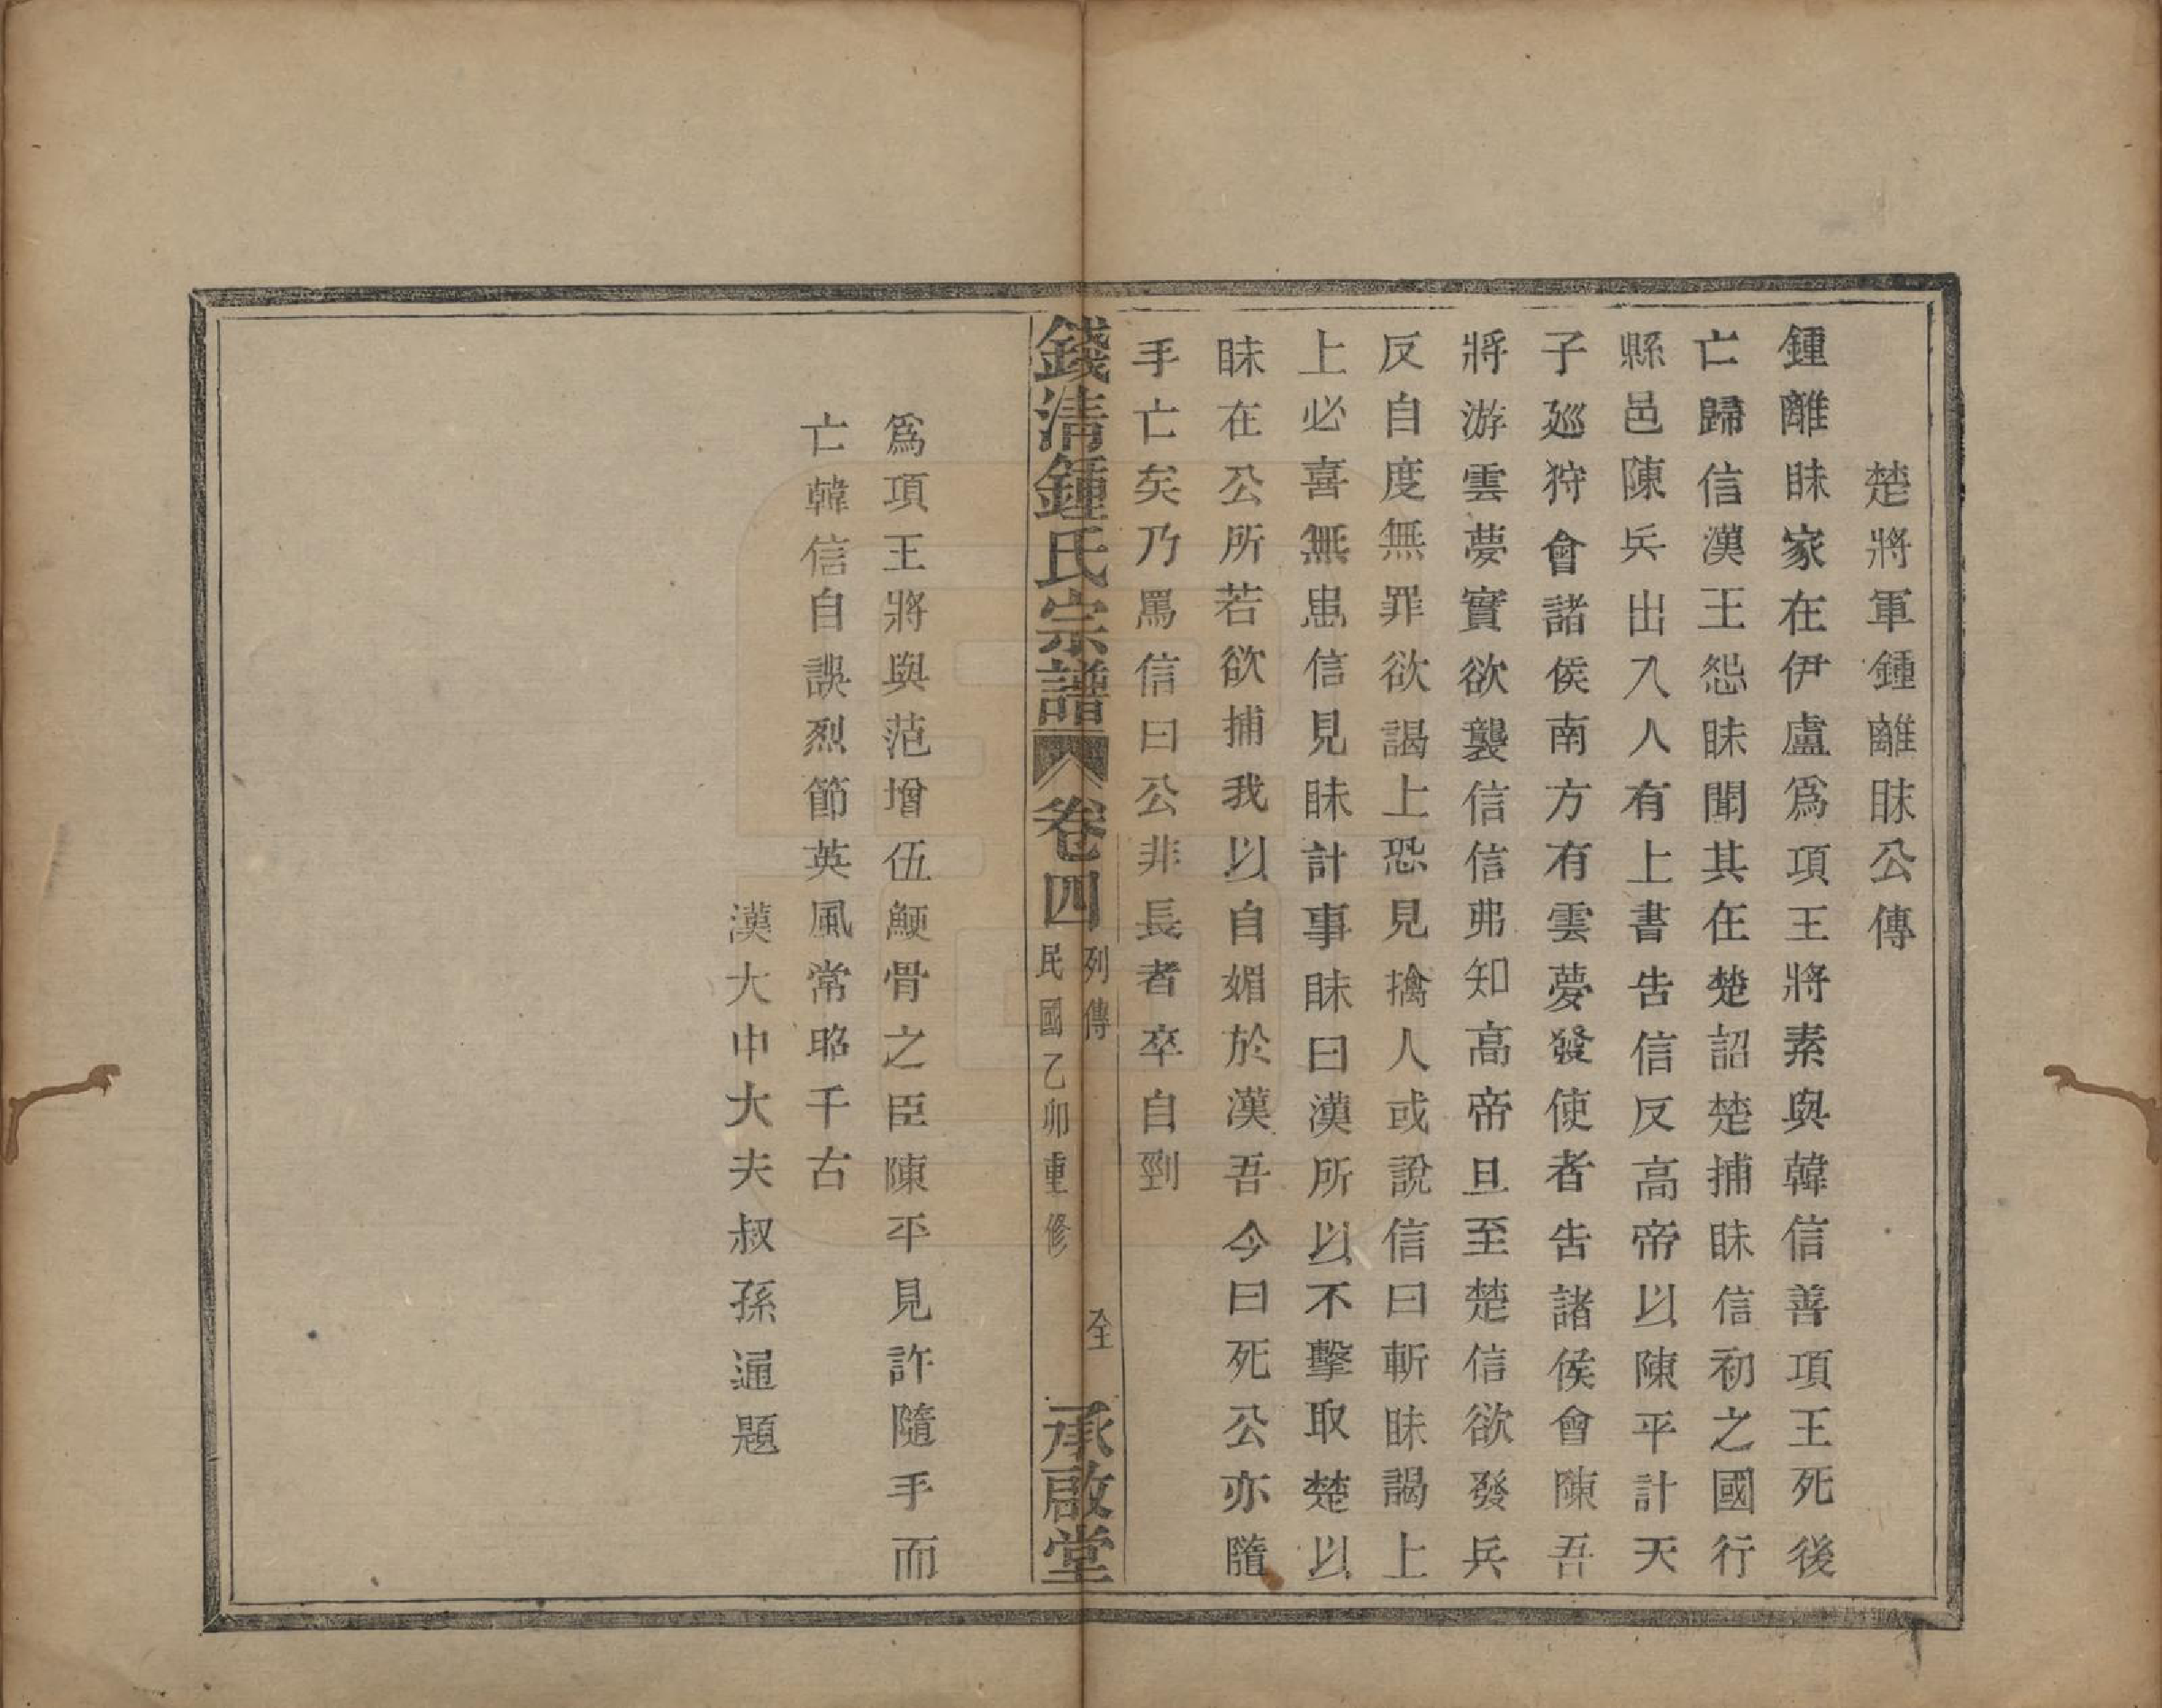 楚將軍鍾離眛公傳
鍾離眛家在伊盧爲項王將素與韓信善項王死後
亡歸信漢王怨眛聞其在楚詔楚捕眛信初之國行
縣邑陳兵出入人有上書告信反高帝以陳平計天
子廵狩會諸侯南方有雲夢發使者告諸侯會陳吾
將游雲夢實欲襲信信弗知高帝且至楚信欲發兵
反自度無罪欲謁上恐見擒人或說信曰斬眛謁上
上必喜無患信見眛計事眛曰漢所以不擊取楚以
眛在公所若欲捕我以自媚於漢吾今日死公亦隨
手亡矣乃罵信曰公非長者卒自剄
錢清鍾氏宗譜 卷四 列傳 民國乙卯重修 全 承啟堂
爲項王將與范增伍鯁骨之臣陳平見許隨手而
亡韓信自誤烈節英風常昭千古
漢大中大夫叔孫通題